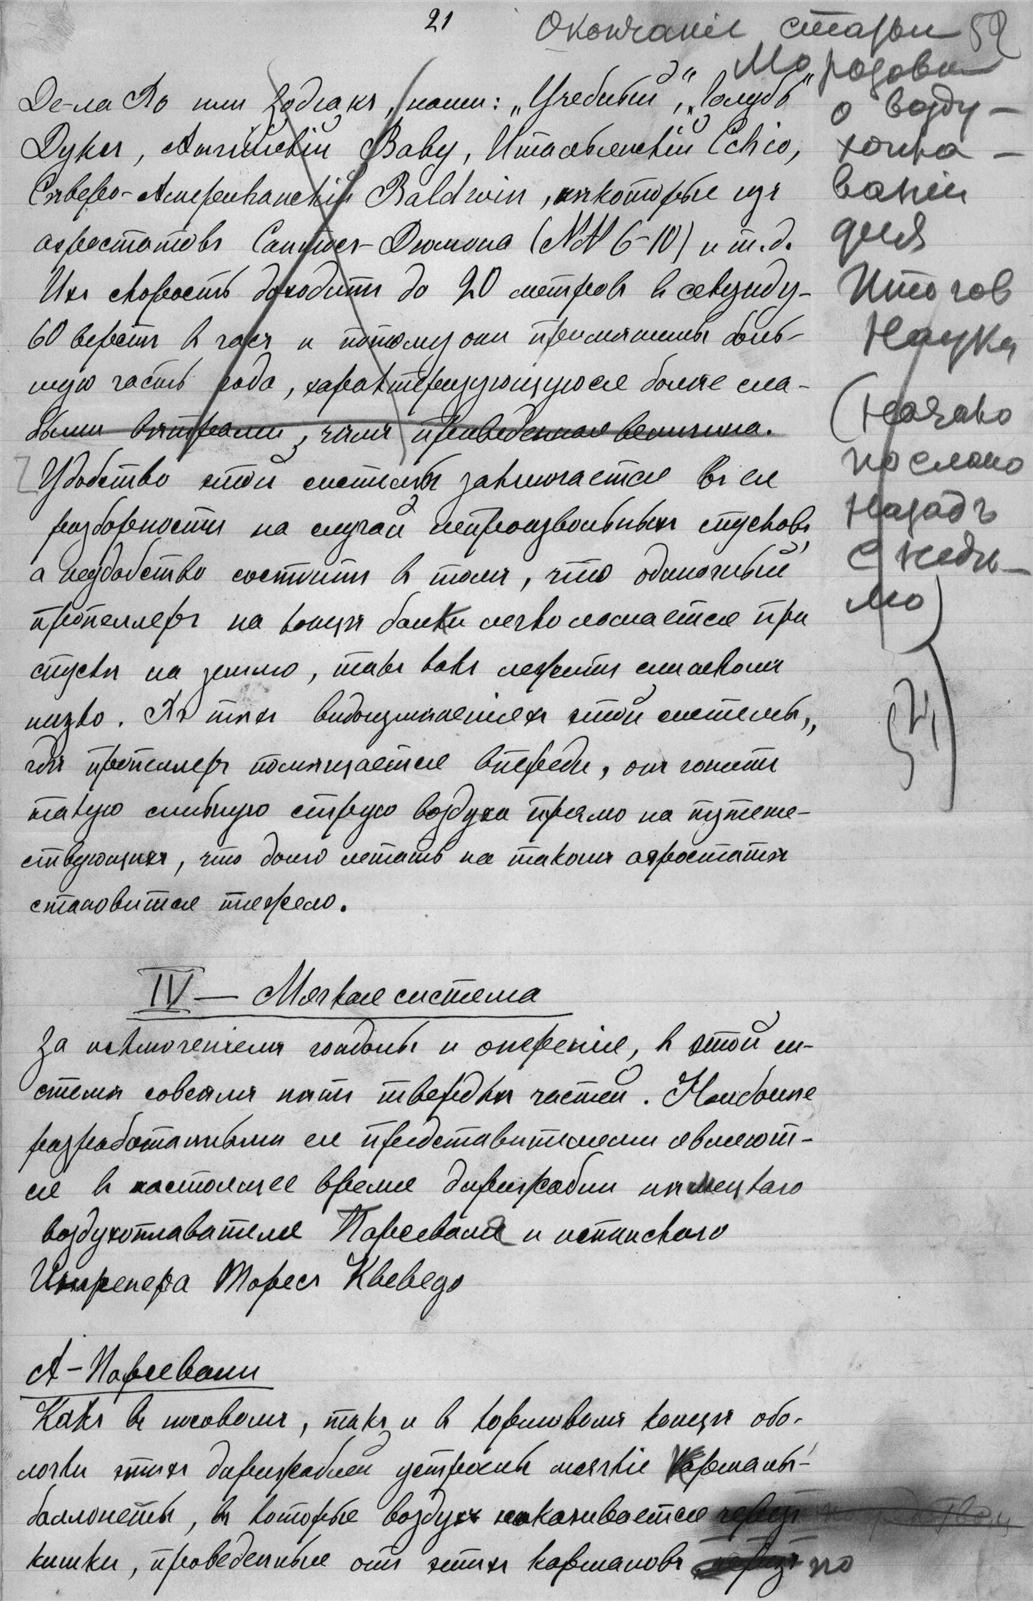 21
Окончаніе статьи 52
Морозова
о возду-
хопла-
ваніи
для
Итогов
Науки
(Начало
послано
назадъ
с недѣ-
лю)
Де-ла Во или Зодіакъ, наши: „Учебный“, „Голубь“
Дукс, Англійскій Baby, Итальянскій Echo,
Сѣверо-Американскій Baldwin, нѣкоторые изъ
аэростатовъ Сантос-Дюмона (NN 6-10) и т.д.
Ихъ скорость доходитъ до 20 метровъ въ секунду-
60 верстъ въ часъ и потому они примѣнимы боль-
шую часть года, характеризующуюся болѣе сла-
быми вѣтрами, чѣмъ приведенная величина.
Удобство этой системы заключается въ ея
разборности на случай непроизвольныхъ спусковъ,
а неудобство состоитъ въ томъ, что одиночный
пропеллеръ на концѣ балки легко ломается при
спускѣ на землю, такъ какъ лежитъ слишкомъ
низко. Въ тѣхъ видоизмѣненіяхъ этой системы,
гдѣ пропеллеръ помѣщается впереди, онъ гонитъ
такую сильную струю воздуха прямо на путеше-
ствующихъ, что долго летать на такомъ аэростатѣ
становится тяжело.
IV — Мягкая система
За исключеніемъ гондолы и оперенія, въ этой си-
стемѣ совсѣмъ нѣтъ твердыхъ частей. Наиболѣе
разработанными ея представителями являют-
ся въ настоящее время дирижабли нѣмецкаго
воздухоплавателя Парсеваля и испанскаго
Инженера Торесъ Кведо
А - Парсевали
Какъ въ носовомъ, такъ и въ кормовомъ концѣ обо-
лочки этихъ дирижаблей устроены мягкіе карманы-
баллонеты, въ которые воздухъ накачивается черезъ
кишки, проведенныя отъ этихъ кармановъ по